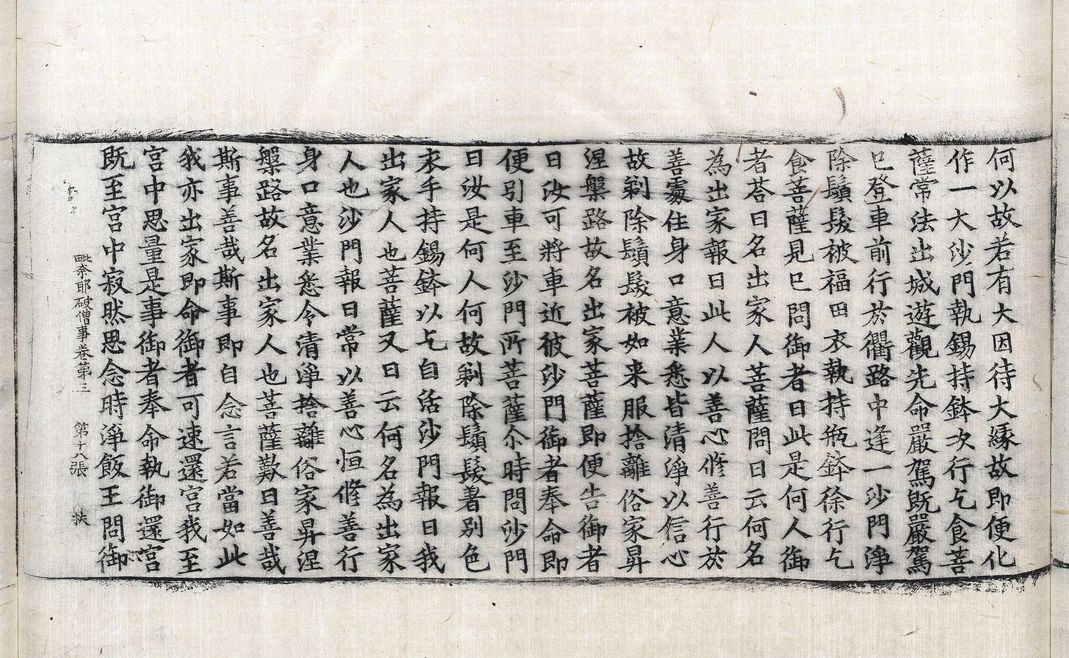 何以故若有大因待大緣故即便化
作一大沙門執錫持鉢次行乞食菩
薩常法出城遊觀先命嚴駕既嚴駕
已登車前行於衢路中逢一沙門淨
除鬚髮被福田衣執持瓶鉢徐行乞
食菩薩見已問御者曰此是何人御
者荅曰名出家人菩薩問曰云何名
為出家報曰此人以善心修善行於
善處住身口意業悉皆清淨以信心
故剃除鬚髮被如来服捨離俗家昇
涅槃路故名出家菩薩即便告御者
曰汝可將車近彼沙門御者奉命即
便引車至沙門所菩薩尒時問沙門
曰汝是何人何故剃除鬚髮著別色
衣手持錫鉢以乞自活沙門報曰我
出家人也菩薩又曰云何名為出家
人也沙門報曰常以善心恒修善行
身口意業悉令清淨捨離俗家昇涅
槃路故名出家人也菩薩歎曰善哉
斯事善哉斯事即自念言若當如此
我亦出家即命御者可速還宮我至
宮中思量是事御者奉命執御還宮
既至宮中寂然思念時淨飯王問御
毗奈耶破僧事卷第三 第十八張 挾